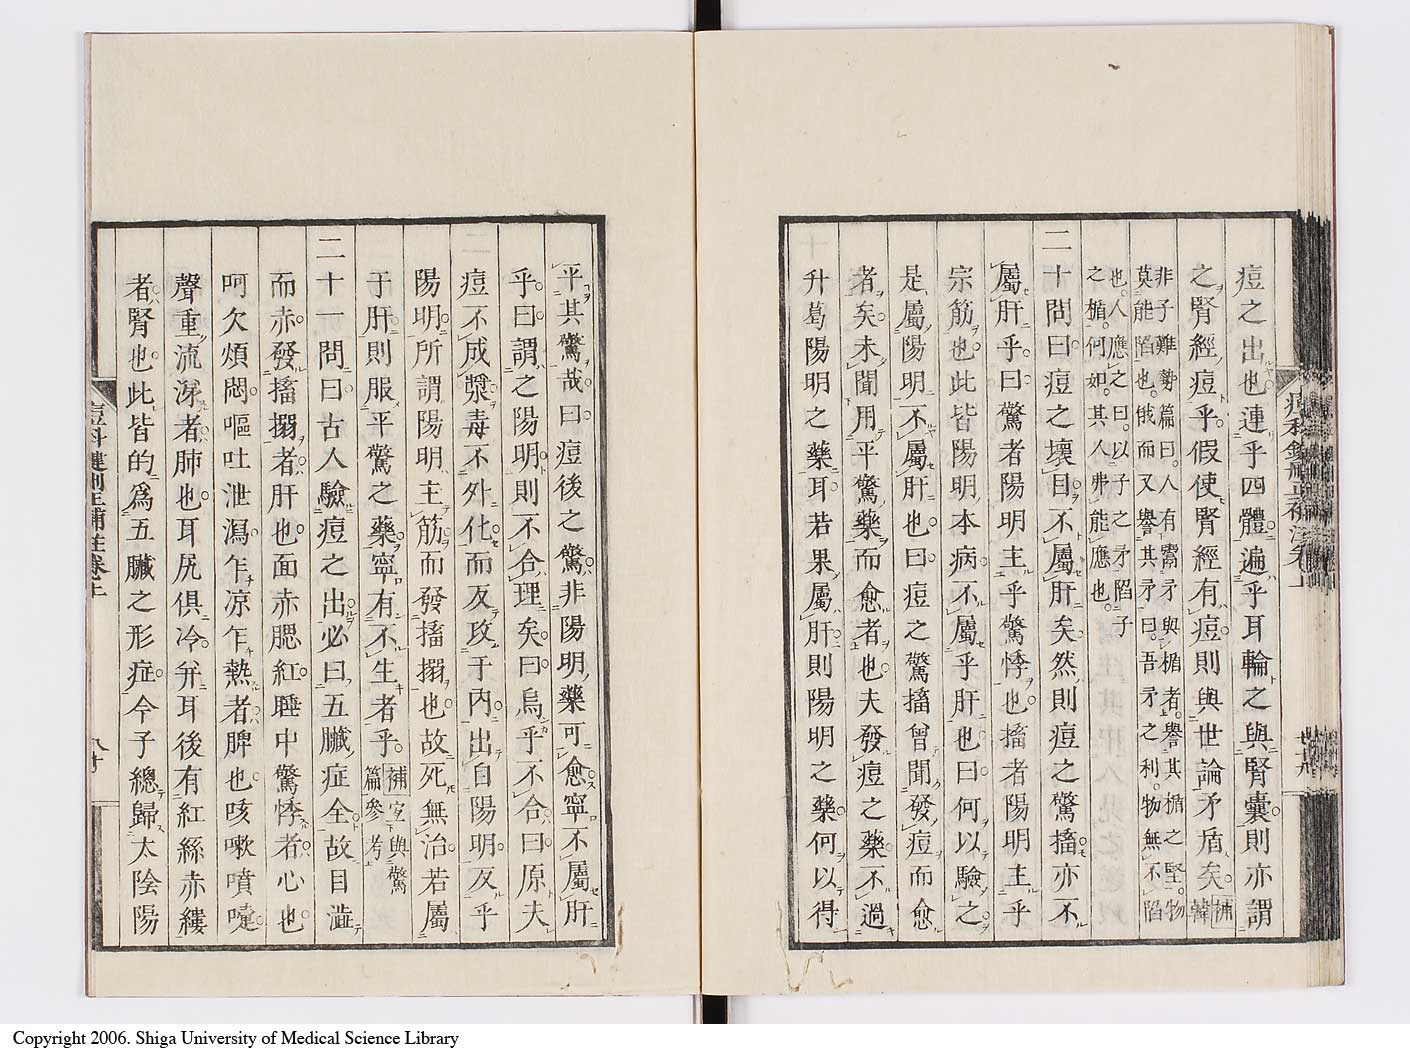 痘之出也連乎四體遍乎耳輪之與腎囊則亦謂
之腎經痘乎假使腎經有痘則與世論矛盾矣補韓
非子難勢篇曰人有鬻矛與楯者譽其楯之堅物
莫能陷也俄而又譽其矛曰吾矛之利物無不陷
也人應之曰以子之矛陷子
之楯何如其人弗能應也
二十問曰痘之壞目不屬肝矣然則痘之驚搐亦不
屬肝乎曰驚者陽明主乎驚悸也搐者陽明主乎
宗筋也此皆陽明本病不屬乎肝也曰何以驗之
是屬陽明不屬肝也曰痘之驚搐曾聞發痘而愈
者矣未聞用平驚藥而愈者也夫發痘之藥不過
升葛陽明之藥耳若果屬肝則陽明之藥何以得
平其驚哉曰痘後之驚非陽明藥可愈寧不屬肝
乎曰謂之陽明則不合理矣曰烏乎不合曰原夫
痘不成漿毒不外化而反攻于內出自陽明反乎
陽明所謂陽明主筋而發搐搦也故死無治若屬
于肝則服平驚之藥寧有不生者乎補室與驚
篇參考
二十一問曰古人驗痘之出必曰五臟症全故目澁
而赤發搐搦者肝也面赤腮紅睡中驚悸者心也
呵欠煩悶嘔吐泄瀉乍凉乍熱者脾也咳嗽噴嚏
聲重流涕者肺也耳尻俱冷并耳後有紅絲赤縷
者腎也此皆的爲五臟之形症今子總歸太陰陽
痘科鍵刪正補註卷上
Copyright 2006. Shiga University of Medical Science Library